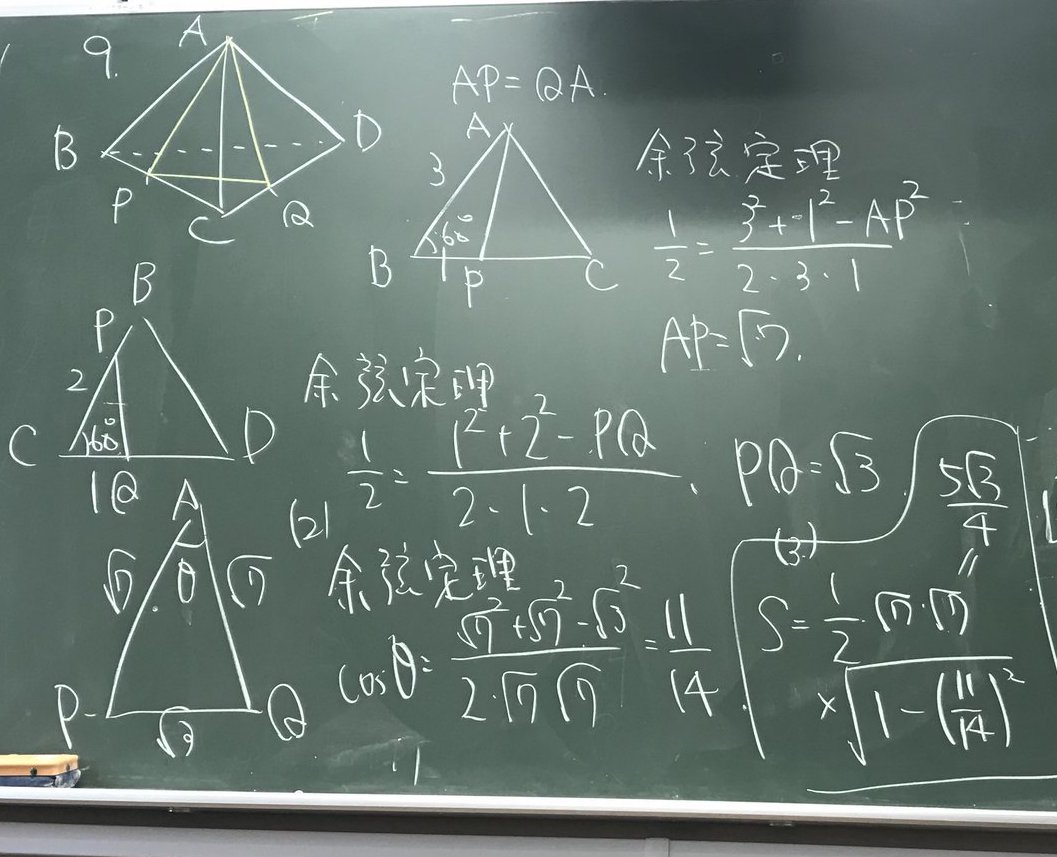 9.
A
B
D
P
C
Q
AP = QA.
A
3
60°
1
B
P
C
余弦定理
1/2 = (3² + 1² - AP²)/(2·3·1)
AP = √7.
B
P
2
60°
C
D
1
Q
余弦定理
1/2 = (1² + 2² - PQ)/(2·1·2)
PQ = √3
A
√7
θ
√7
P
Q
√3
(2)
余弦定理
cosθ = (√7² + √7² - √3²)/(2·√7 √7) = 11/14
(3)
5√3/4
〃
S = 1/2·√7·√7
×√(1 - (11/14)²)